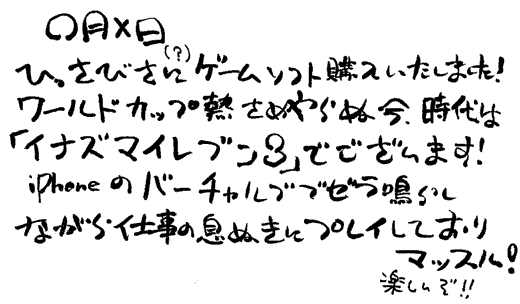 〇月×日
ひっさびさに(?)ゲームソフト購入いたしました!
ワールドカップ熱さめやらぬ今、時代は
「イナズマイレブン3」でございます!
iPhoneのバーチャルブブゼラ鳴らし
ながら仕事の息ぬきにプレイしており
マッスル!
楽しいぞ!!